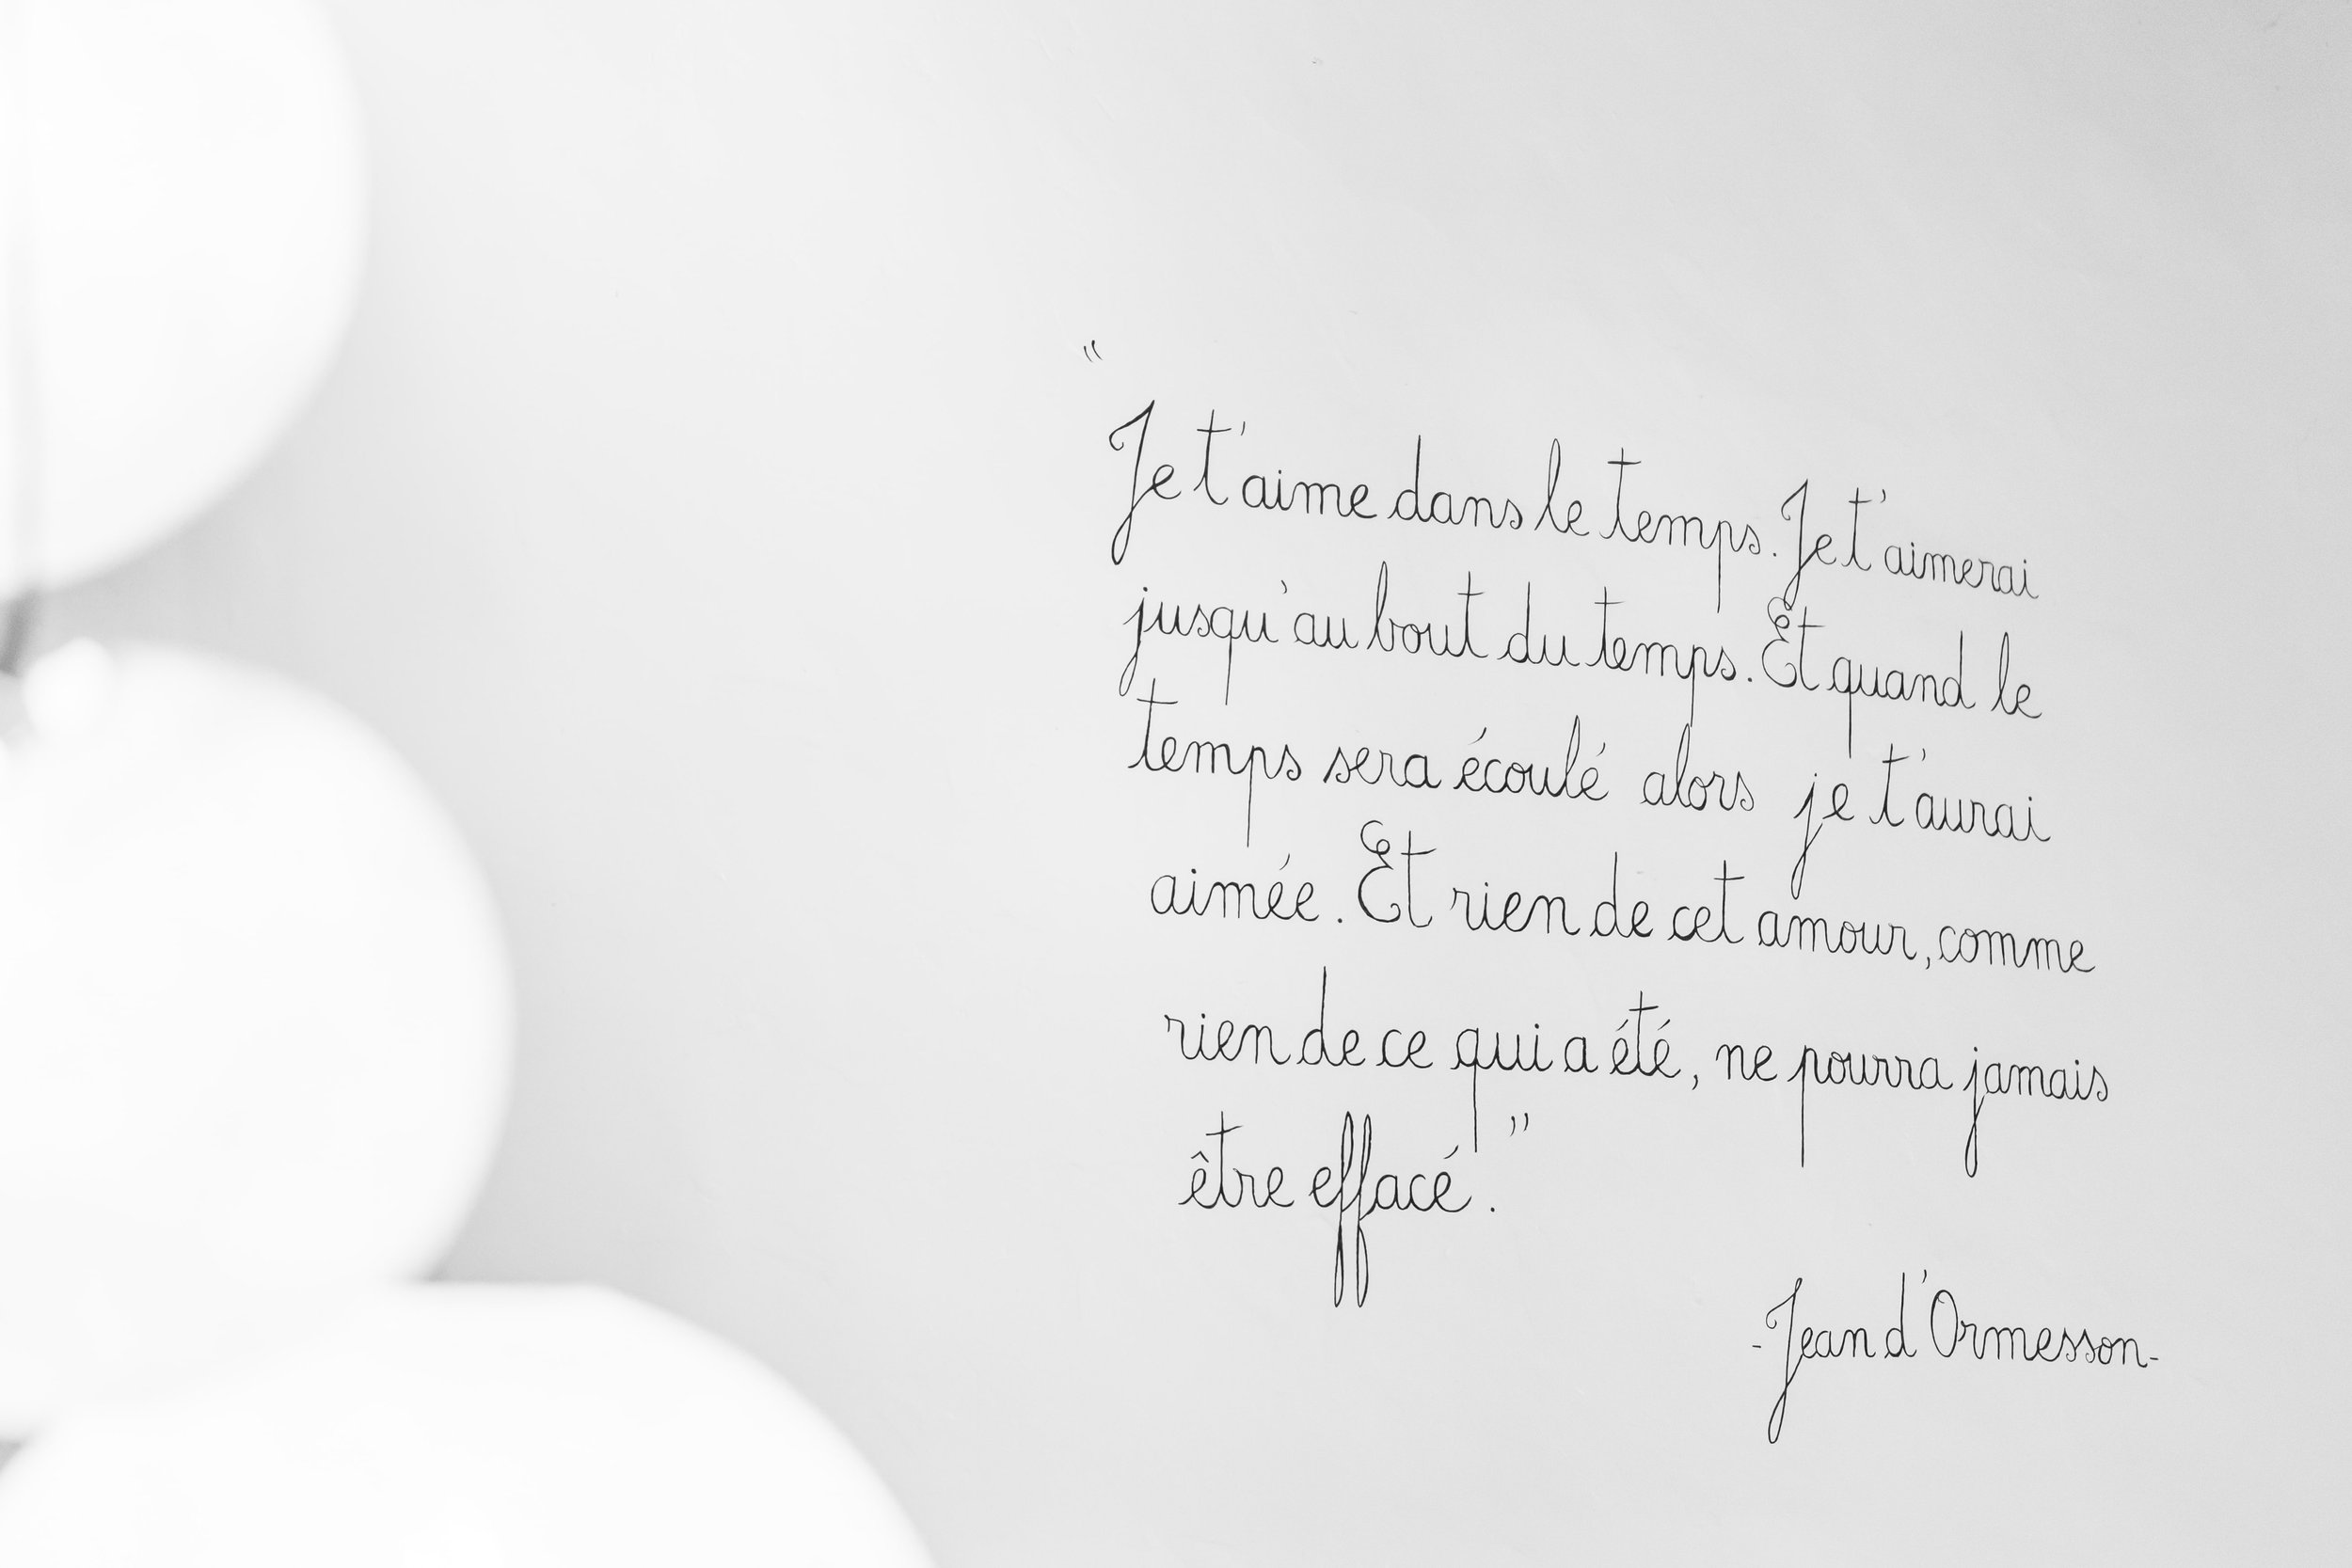 “
Je t'aime dans le temps. Je t'aimerai
jusqu'au bout du temps. Et quand le
temps sera écoulé alors je t'aurai
aimée. Et rien de cet amour, comme
rien de ce qui a été, ne pourra jamais
être effacé.”
-Jean d'Ormesson-